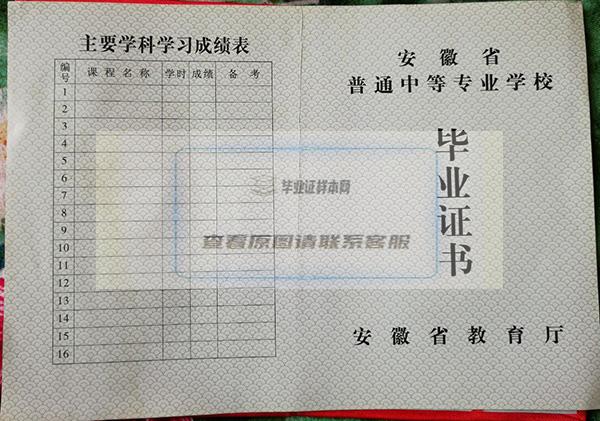 主要学科学习成绩表
编号 课程名称 学时 成绩 备考
1
2
3
4
5
6
7
8
9
10
11
12
13
14
15
16
安徽省
普通中等专业学校
毕业证书
安徽省教育厅
毕业证样本网
查看原图请联系客服